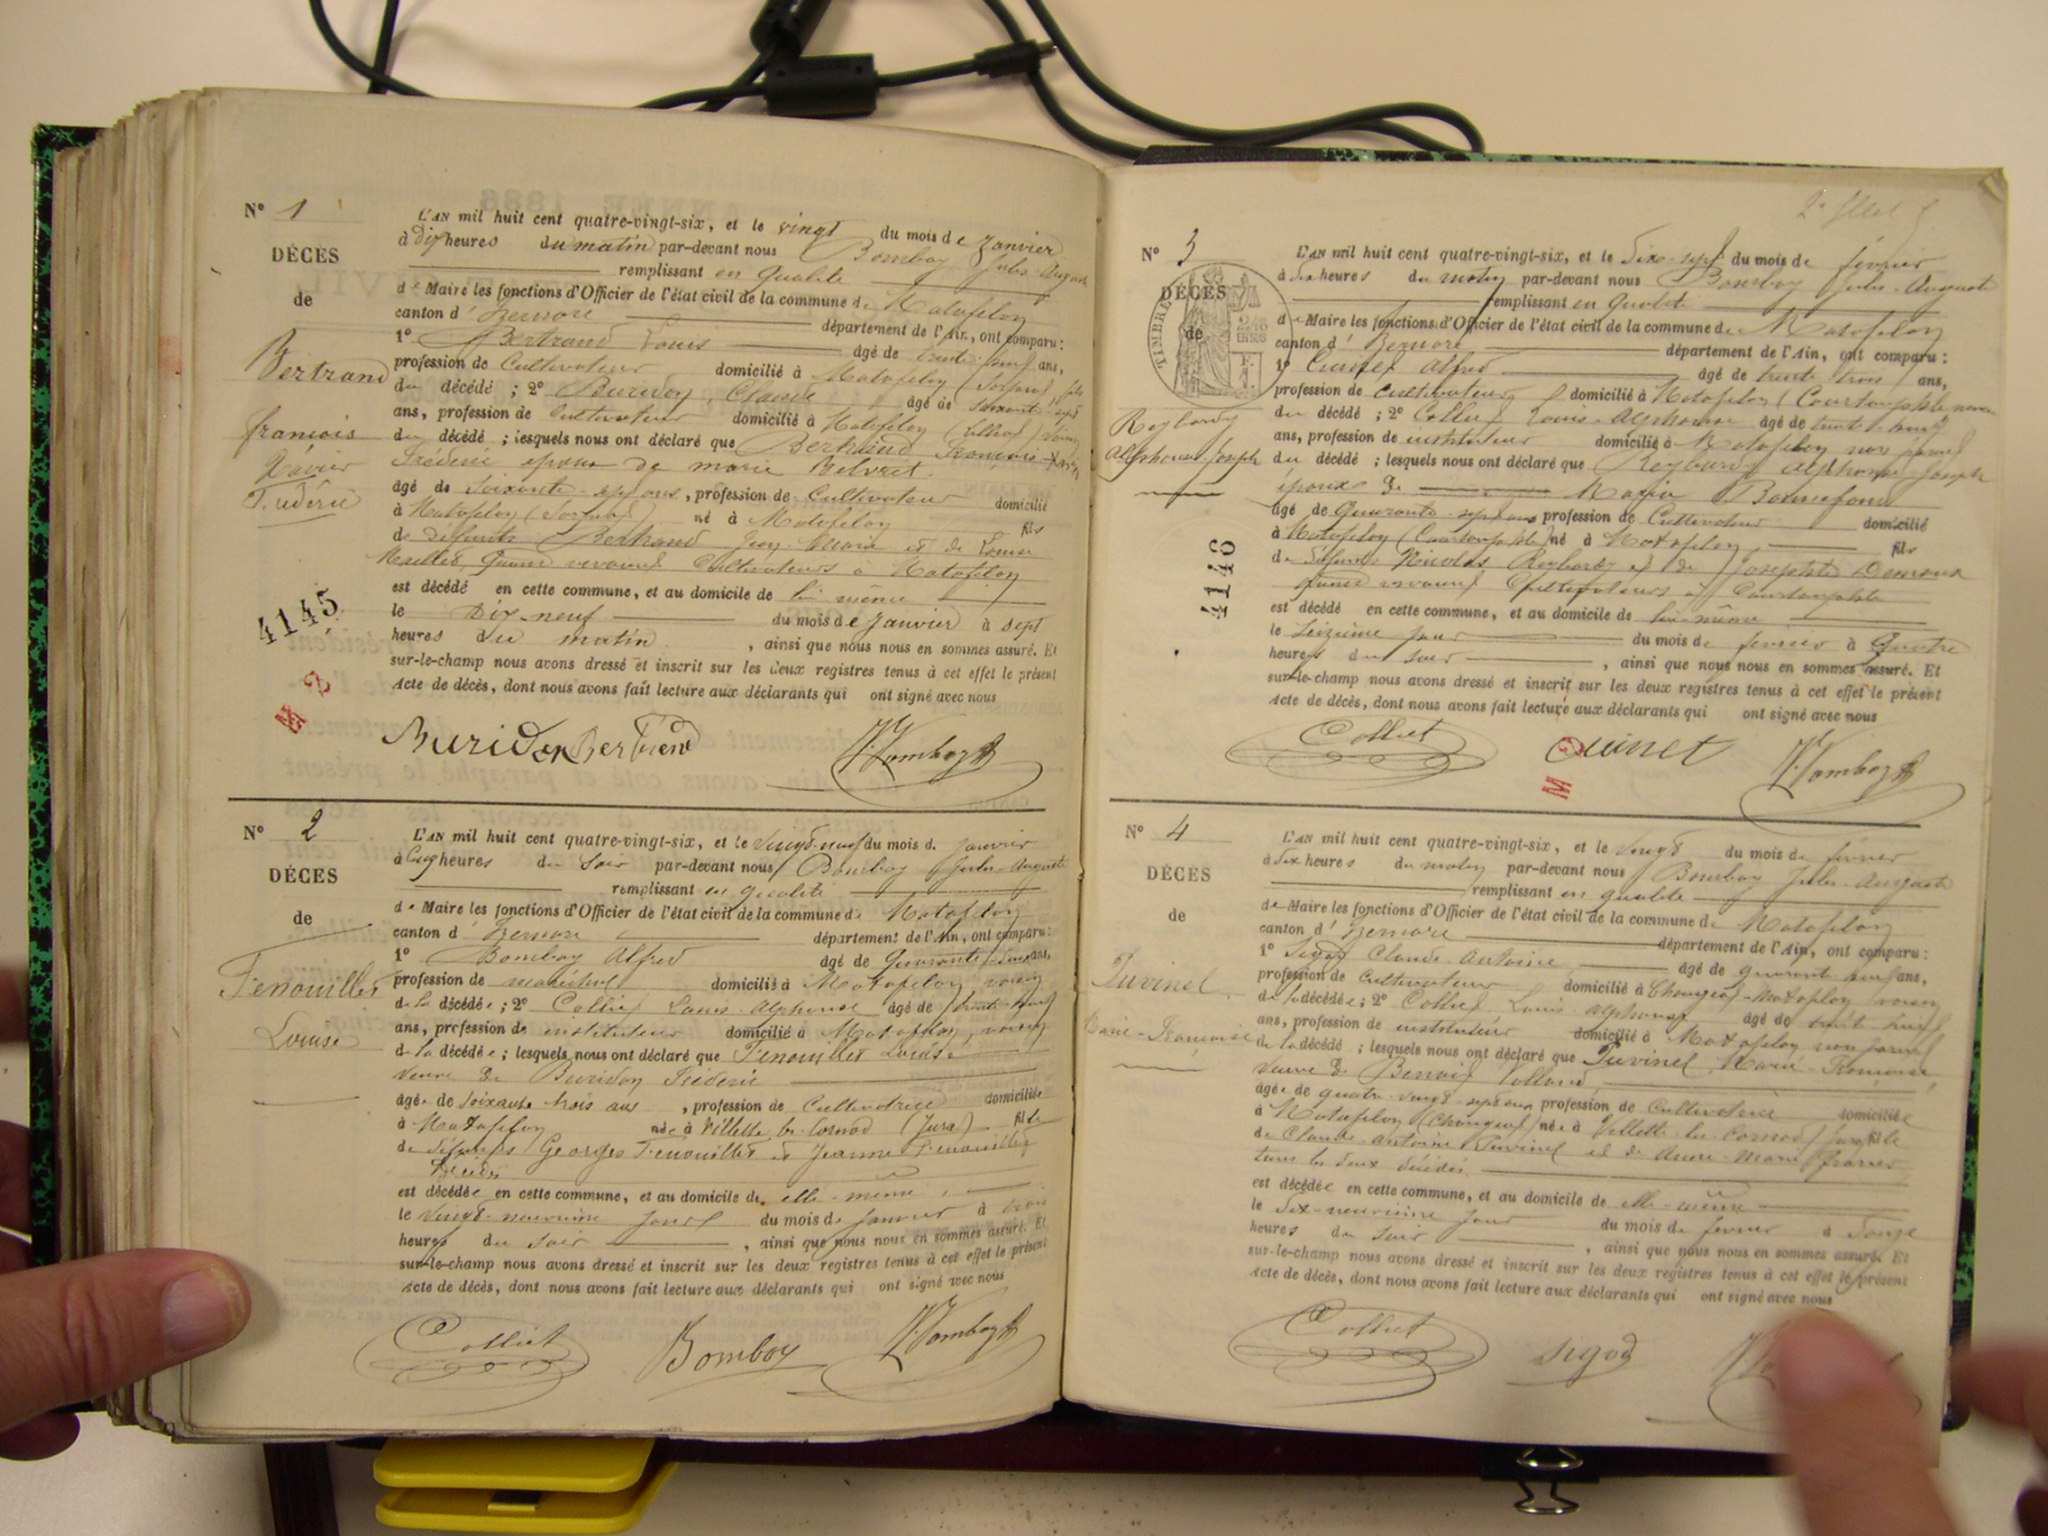 N° 1
DÉCÈS
de
Bertrand
françois
Xavier
Frédéric
4145
M 2
L'AN mil huit cent quatre-vingt-six, et le vingt du mois de Janvier
à Dix heures du matin par-devant nous Bomboy Jules-Auguste
remplissant en qualité
de Maire les fonctions d'Officier de l'état civil de la commune de Matafelon
canton d' Izernore département de l'Ain, ont comparu :
1° Bertrand Louis âgé de trente ans,
profession de Cultivateur domicilié à Matafelon fils
du décédé ; 2° Buridon, Claude âgé de soixante-sept
ans, profession de Cultivateur domicilié à Matafelon voisin
du décédé ; lesquels nous ont déclaré que Bertrand François-Xavier
Frédéric époux de marie
âgé de Soixante-sept ans, profession de Cultivateur domicilié
à Matafelon né à Matafelon fils
de défunts Bertrand Jean-Marie et de Louise
Maillet, quand vivaient Cultivateurs à Matafelon
est décédé en cette commune, et au domicile de lui même
le Dix-neuf du mois de Janvier à sept
heures du matin, ainsi que nous nous en sommes assuré. Et
sur-le-champ nous avons dressé et inscrit sur les deux registres tenus à cet effet le présent
Acte de décès, dont nous avons fait lecture aux déclarants qui ont signé avec nous
Buridon Bertrand J. Bomboy
N° 2
DÉCÈS
de
Fenouillet
Louise
L'AN mil huit cent quatre-vingt-six, et le vingt-neuf du mois de Janvier
à Cinq heures du Soir par-devant nous Bomboy Jules-Auguste
remplissant en qualité
de Maire les fonctions d'Officier de l'état civil de la commune de Matafelon
canton d' Izernore département de l'Ain, ont comparu :
1° Bomboy Alfred âgé de Quarante ans,
profession de maréchal domicilié à Matafelon voisin
de la décédée ; 2° Colliet Louis-Alphonse âgé de trente-huit
ans, profession de instituteur domicilié à Matafelon, voisin
de la décédée ; lesquels nous ont déclaré que Fenouillet Louise
veuve de Buridon Frédéric
âgée de Soixante trois ans, profession de Cultivatrice domiciliée
à Matafelon née à Villette-les-Cornod (Jura) fille
de défunts Georges Fenouillet et Jeanne Fenouillet
décédés
est décédée en cette commune, et au domicile de elle-même
le vingt-neuvième jour du mois de Janvier à trois
heures du soir, ainsi que nous nous en sommes assuré. Et
sur-le-champ nous avons dressé et inscrit sur les deux registres tenus à cet effet le présent
Acte de décès, dont nous avons fait lecture aux déclarants qui ont signé avec nous
Colliet Bomboy J. Bomboy
2e fllet
N° 3
DÉCÈS
de
TIMBRE
Reybardy
Alphonse Joseph
4146
M
L'AN mil huit cent quatre-vingt-six, et le Dix-sept du mois de février
à Dix heures du matin par-devant nous Bomboy Jules-Auguste
remplissant en qualité
de Maire les fonctions d'Officier de l'état civil de la commune de Matafelon
canton d' Izernore département de l'Ain, ont comparu :
1° Cuinet Alfred âgé de trente trois ans,
profession de cultivateur domicilié à Matafelon (Courtouphle) neveu
du décédé ; 2° Colliet Louis-Alphonse âgé de trente-huit
ans, profession de instituteur domicilié à Matafelon non parent
du décédé ; lesquels nous ont déclaré que Reybardy Alphonse-Joseph
époux de Marie Bonnefond
âgé de Quarante-sept ans profession de Cultivateur domicilié
à Matafelon (Courtouphle) né à Matafelon fils
de défunts Nicolas Reybardy et de Josephte
quand vivaient Cultivateurs à Courtouphle
est décédé en cette commune, et au domicile de lui-même
le Seizième jour du mois de février à Quatre
heures du soir, ainsi que nous nous en sommes assuré. Et
sur-le-champ nous avons dressé et inscrit sur les deux registres tenus à cet effet le présent
Acte de décès, dont nous avons fait lecture aux déclarants qui ont signé avec nous
Colliet Cuinet J. Bomboy
N° 4
DÉCÈS
de
Juvinel
Marie-Françoise
L'AN mil huit cent quatre-vingt-six, et le vingt du mois de février
à Dix heures du matin par-devant nous Bomboy Jules-Auguste
remplissant en qualité
de Maire les fonctions d'Officier de l'état civil de la commune de Matafelon
canton d' Izernore département de l'Ain, ont comparu :
1° Sigod Claude-Antoine âgé de quarante-huit ans,
profession de Cultivateur domicilié à Chougeat-Matafelon voisin
de la décédée ; 2° Colliet Louis-Alphonse âgé de trente-huit
ans, profession de instituteur domicilié à Matafelon non parent
de la décédée ; lesquels nous ont déclaré que Juvinel Marie-Françoise
veuve de Benoit Volland
âgée de quatre-vingt-sept ans profession de Cultivatrice domiciliée
à Matafelon (Chougeat) née à Villette-les-Cornod (Jura) fille
de Claude-Antoine Juvinel et de Anne-Marie
tous les deux décédés
est décédée en cette commune, et au domicile de elle-même
le Dix-neuvième jour du mois de février à Douze
heures du soir, ainsi que nous nous en sommes assuré. Et
sur-le-champ nous avons dressé et inscrit sur les deux registres tenus à cet effet le présent
Acte de décès, dont nous avons fait lecture aux déclarants qui ont signé avec nous
Colliet Sigod